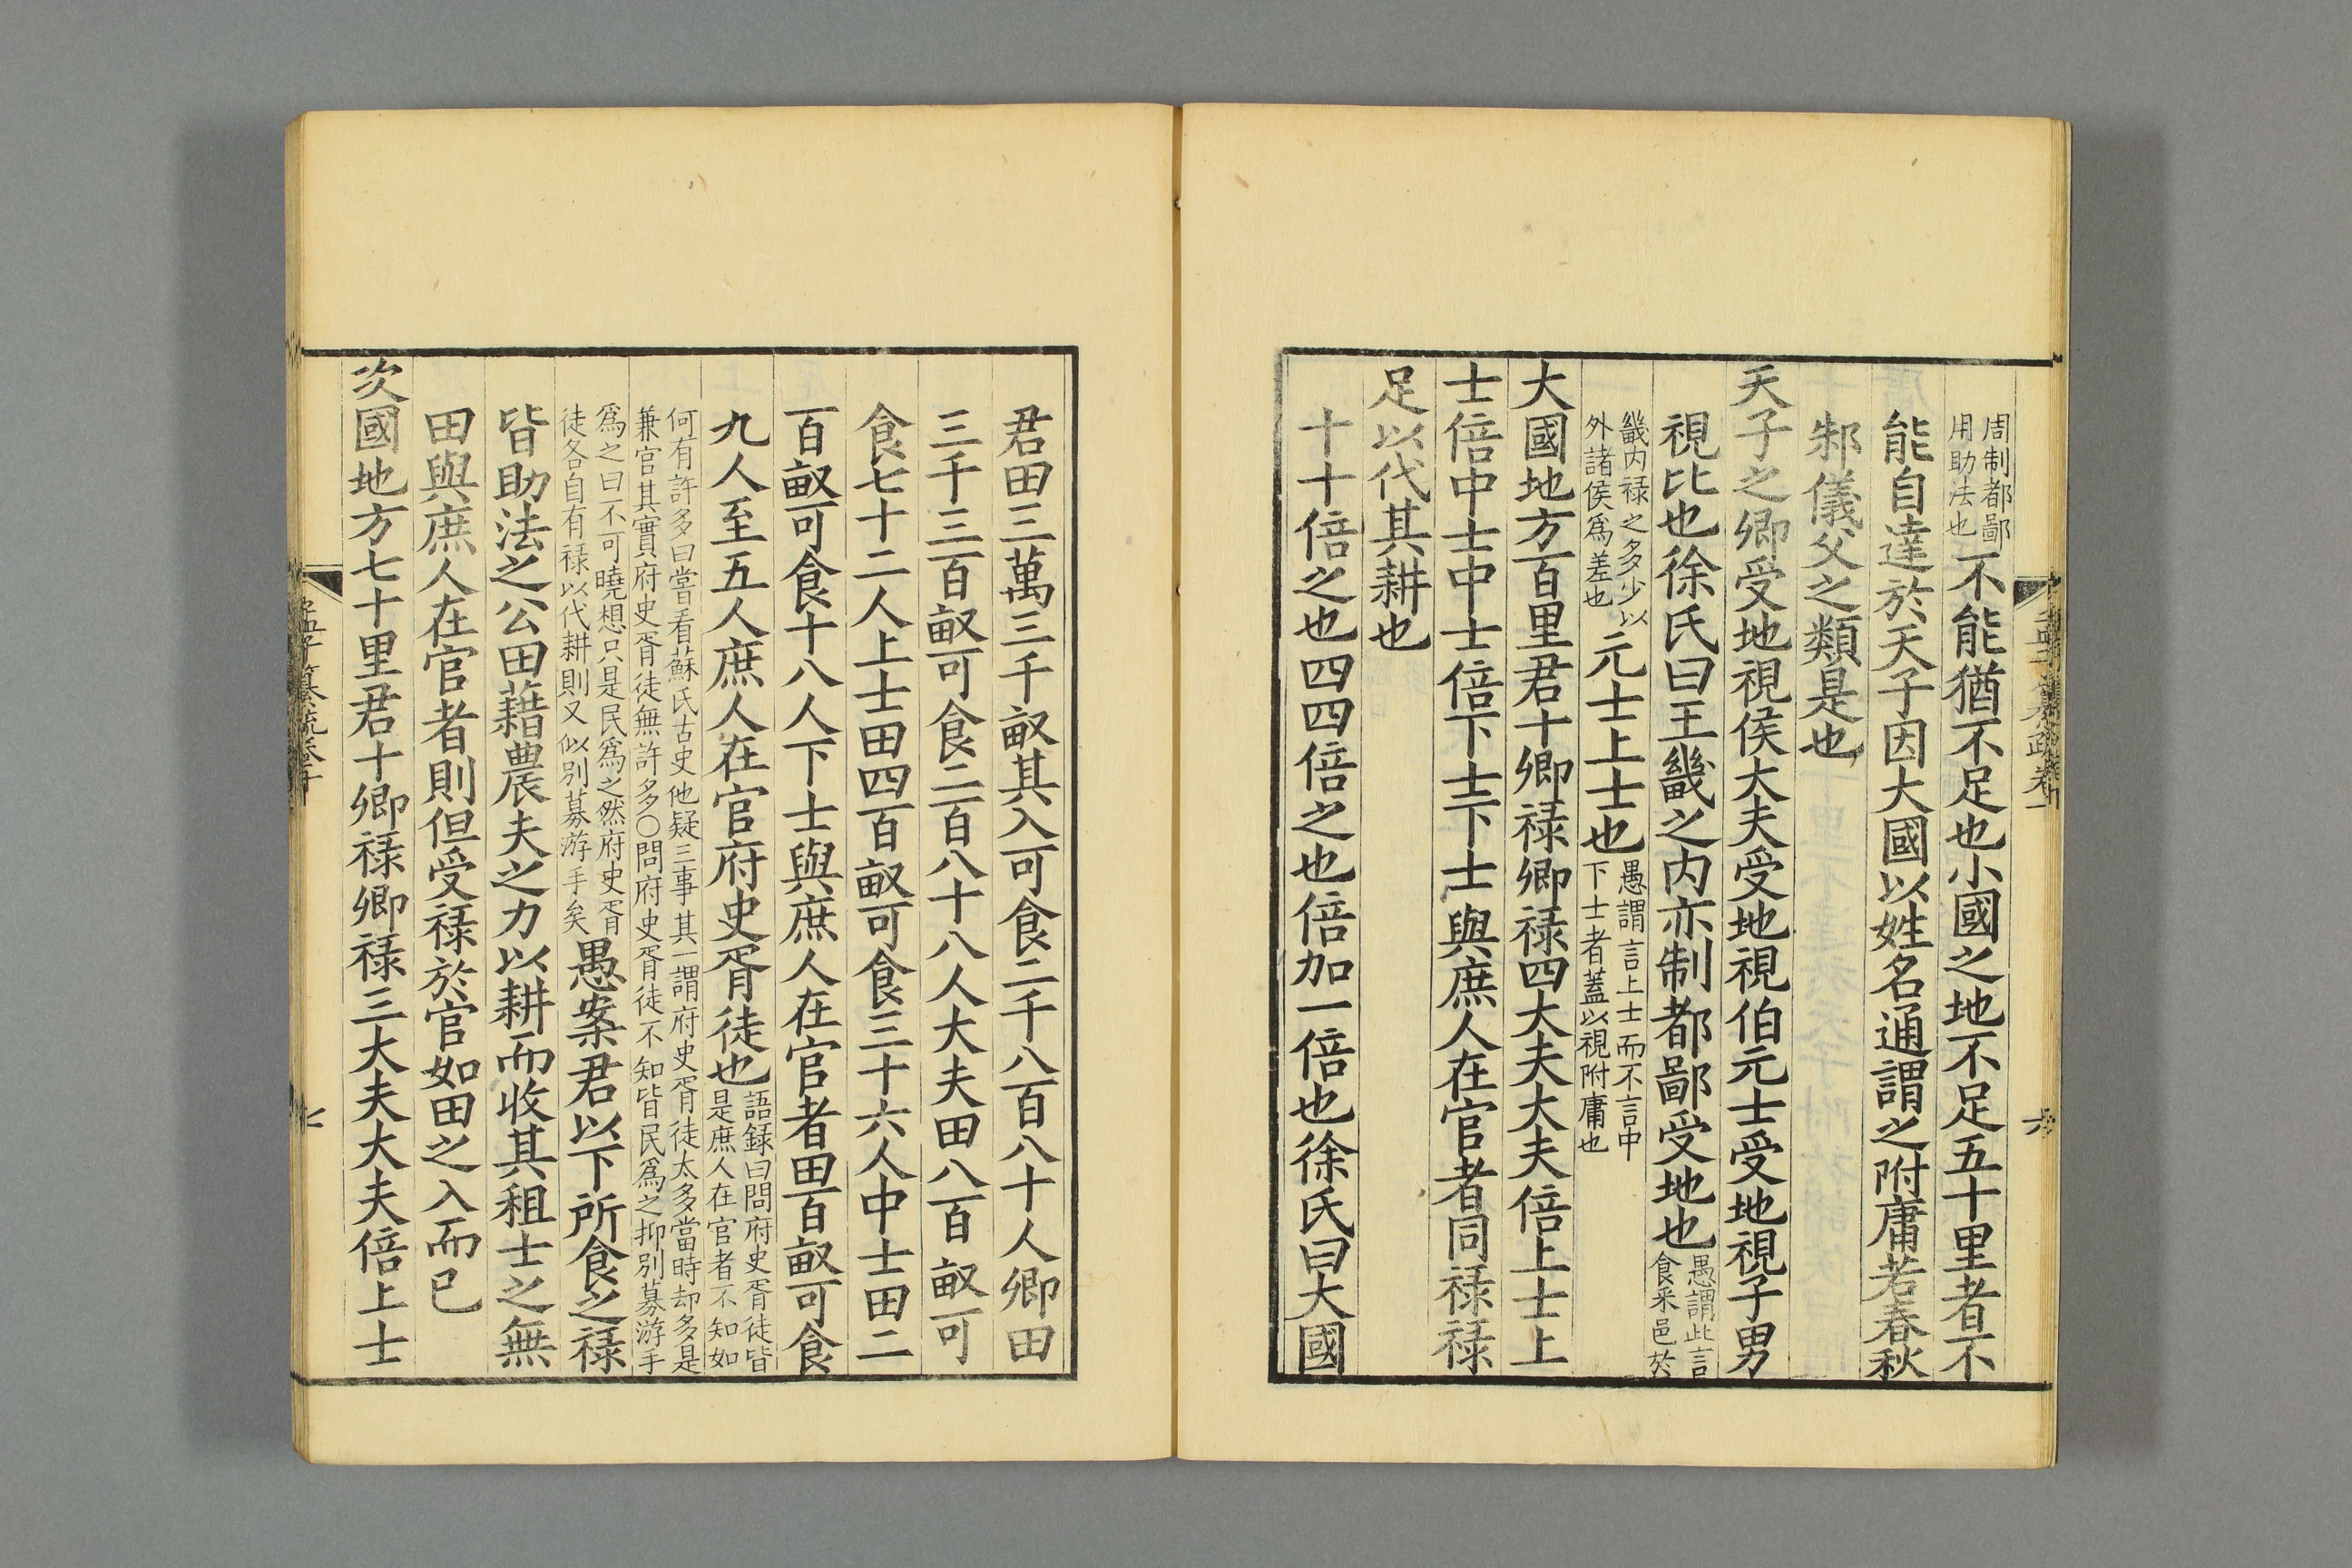 周制都鄙
用助法也
不能猶不足也小國之地不足五十里者不
能自達於天子因大國以姓名通謂之附庸若春秋
邾儀父之類是也
天子之卿受地視侯大夫受地視伯元士受地視子男
視比也徐氏曰王畿之内亦制都鄙受地也
愚謂此言
食采邑於
畿内禄之多少以
外諸侯爲差也
元士上士也
愚謂言上士而不言中
下士者蓋以視附庸也
大國地方百里君十卿禄卿禄四大夫大夫倍上士上
士倍中士中士倍下士下士與庶人在官者同禄禄
足以代其耕也
十十倍之也四四倍之也倍加一倍也徐氏曰大國
君田三萬三千畞其入可食二千八百八十人卿田
三千三百畞可食二百八十八人大夫田八百畞可
食七十二人上士田四百畞可食三十六人中士田二
百畞可食十八人下士與庶人在官者田百畞可食
九人至五人庶人在官府史胥徒也
語録曰問府史胥徒皆
是庶人在官者不知如
何有許多曰嘗看蘇氏古史他疑三事其一謂府史胥徒太多當時却多是
兼官其實府史胥徒無許多〇問府史胥徒不知皆民爲之抑別募游手
爲之曰不可曉想只是民爲之然府史胥
徒各自有禄以代耕則又似別募游手矣
愚案君以下所食之禄
皆助法之公田藉農夫之力以耕而收其租士之無
田與庶人在官者則但受禄於官如田之入而已
次國地方七十里君十卿禄卿禄三大夫大夫倍上士
孟子纂疏卷十
七